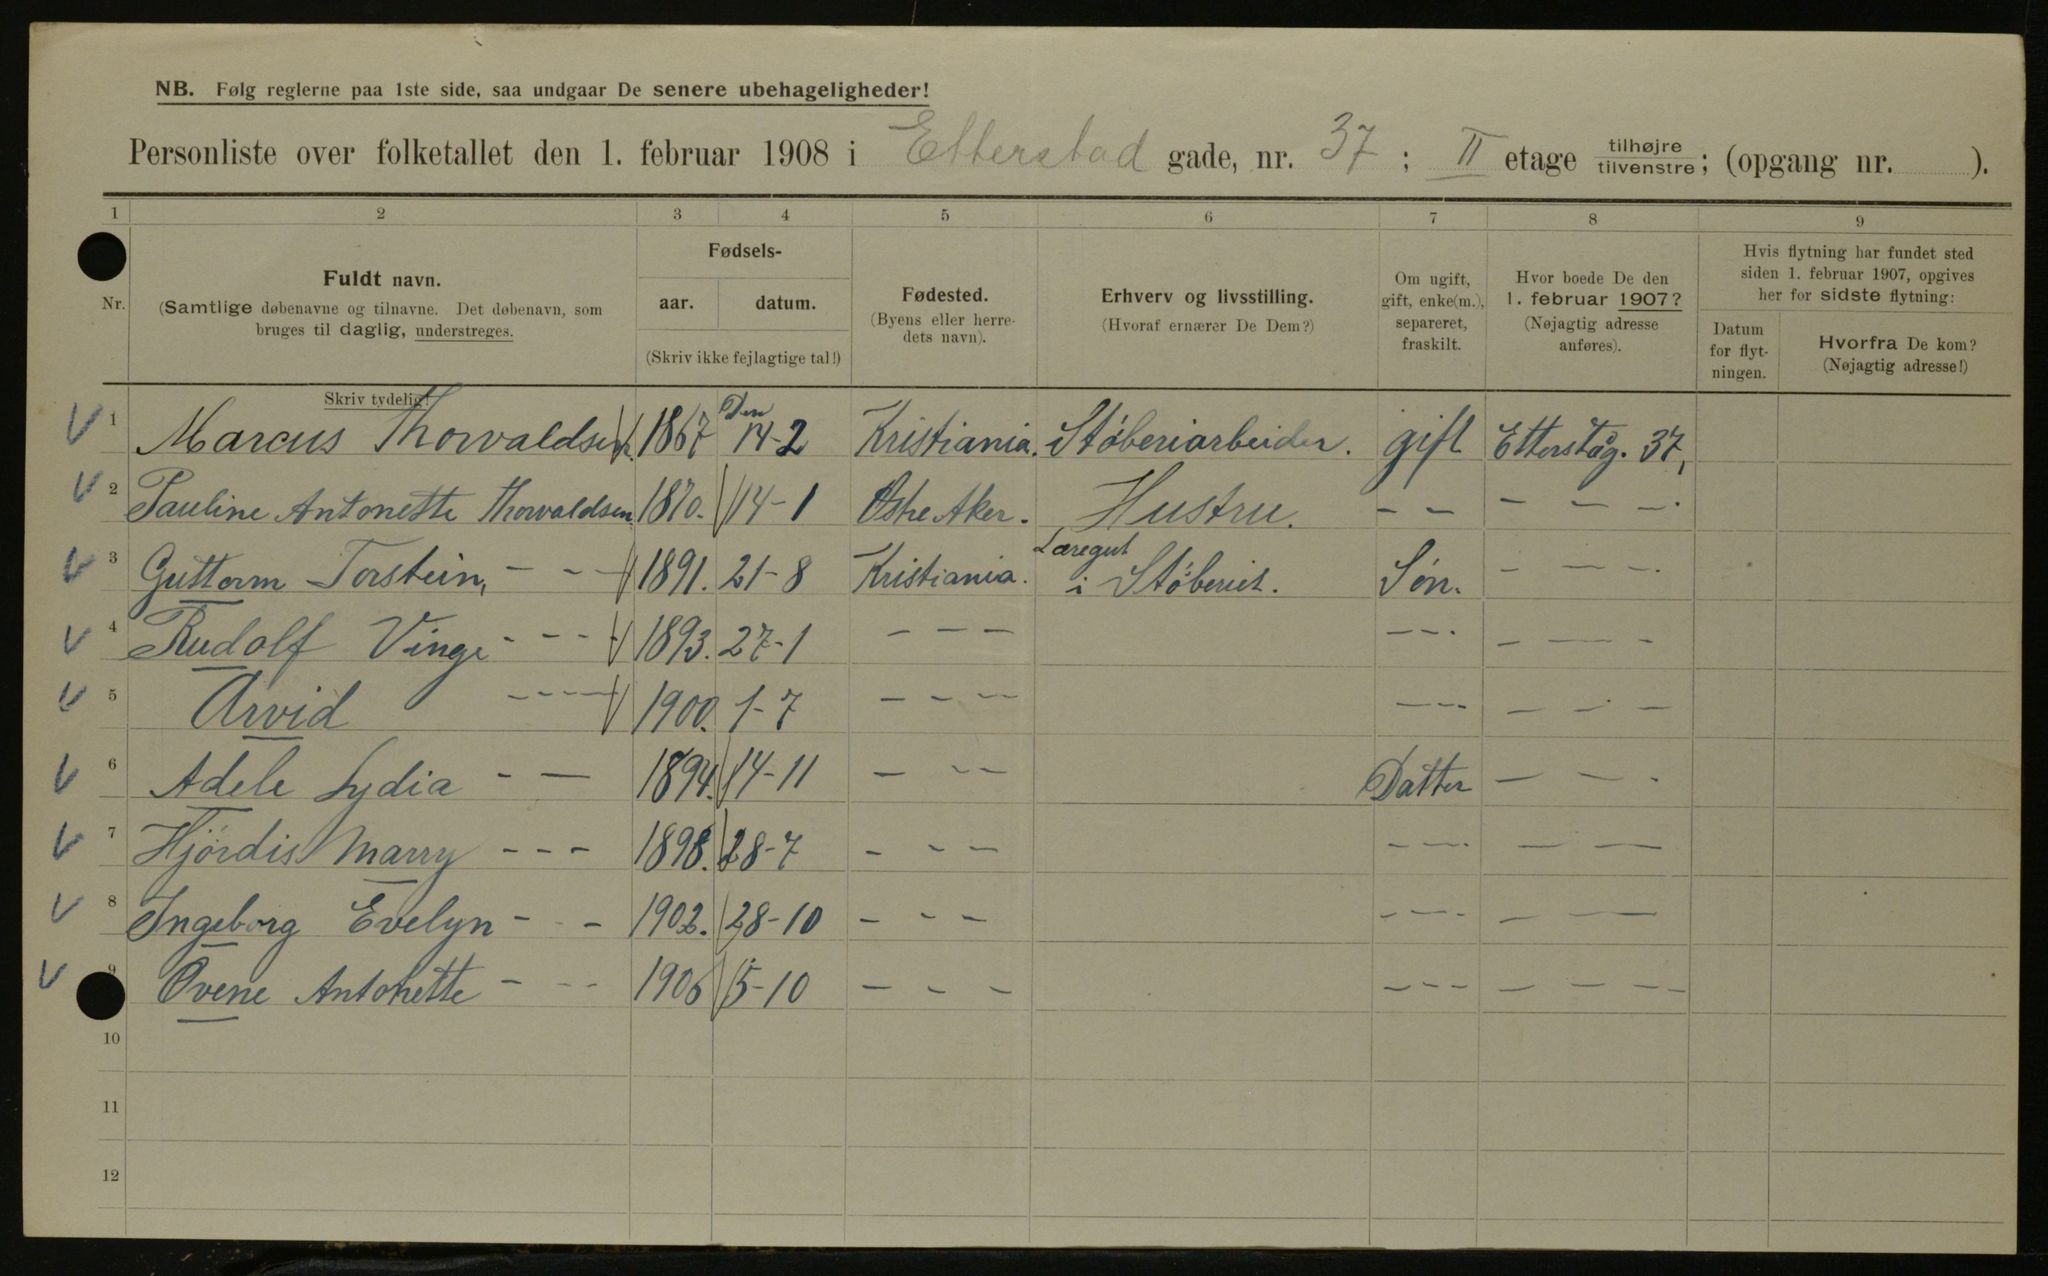 NB. Følg reglerne paa 1ste side, saa undgaar De senere ubehageligheder!
Personliste over folketallet den 1. februar 1908 i Etterstad gade, nr. 37 ; II etage tilhøjre tilvenstre; (opgang nr. ).
1 2 3 4 5 6 7 8 9
Nr. Fuldt navn. (Samtlige døbenavne og tilnavne. Det døbenavn, som bruges til daglig, understreges.
Fødsels- aar. datum. (Skriv ikke fejlagtige tal!)
Fødested. (Byens eller herredets navn).
Erhverv og livsstilling. (Hvoraf ernærer De Dem?)
Om ugift, gift, enke(m.), separeret, fraskilt.
Hvor boede De den 1. februar 1907? (Nøjagtig adresse anføres).
Hvis flytning har fundet sted siden 1. februar 1907, opgives her for sidste flytning:
Datum for flytningen.
Hvorfra De kom? (Nøjagtig adresse!)
Skriv tydelig!
1 Marcus Thorvaldsen. 1867 Den 14-2 Kristiania. Støberiarbeider. gift Etterstag. 37,
2 Pauline Antonette Thorvaldsen 1870. 14-1 Østre Aker. Hustru. - - - - -
3 Guttorm Torstein, - - - 1891. 21-8 Kristiania. Læregut i Støberiet. Søn. - - - -
4 Rudolf Vinge - - - - 1893. 27-1 - - - - - - - - - -
5 Arvid - - - - 1900. 1-7 - - - - - - - - -
6 Adele Lydia - - 1894. 14-11 - - - Datter - - -
7 Hjørdis Marry - - - 1898. 28-7 - - - - - - - - -
8 Ingeborg Evelyn - - - 1902. 28-10 - - - - - - - - -
9 Ovene Antonette - - - 1906 15-10 - - - - - - - - - -
10
11
12